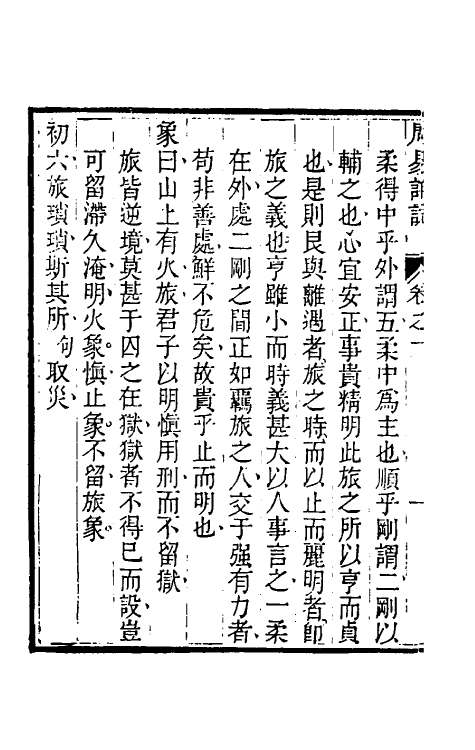 柔得中乎外謂五柔中為主也順乎剛謂二剛以
輔之也心宜安正事貴精明此旅之所以亨而貞
也是則艮與離遇者旅之時而以止而麗明者卽
旅之義也亨雖小而時義甚大以人事言之一柔
在外處二剛之間正如羈旅之人交于强有力者
苟非善處鮮不危矣故貴乎止而明也
象曰山上有火旅君子以明慎用刑而不留獄
旅皆逆境莫甚于囚之在獄獄者不得已而設豈
可留滯久淹明火象慎止象不留旅象
初六旅瑣瑣斯其所句取災